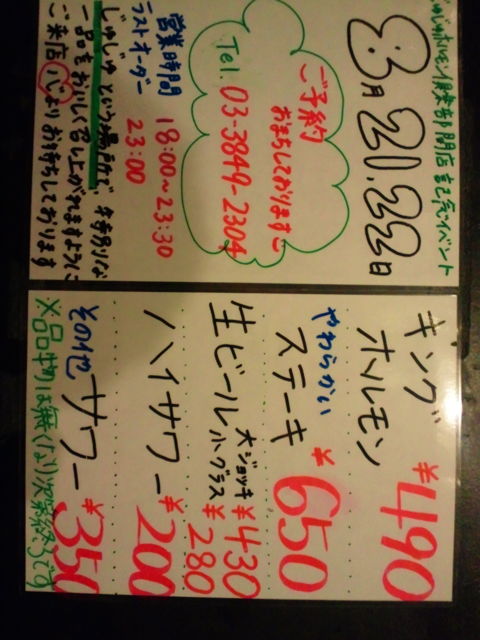 じゅじゅホルモン倶楽部開店記念イベント
8月21.22日
ご予約
おまちしております
Tel. 03-3849-2304
営業時間 18:00〜23:30
ラストオーダー 23:00
じゅじゅという場所で
一品をおいしく召し上がれますように
ご来店心よりお待ちしております
キング
ホルモン ¥490
やわらかい
ステーキ ¥650
生ビール 大ジョッキ ¥430
小グラス ¥280
ハイサワー ¥200
その他 サワー ¥350
※品切は無くなり次第終了です